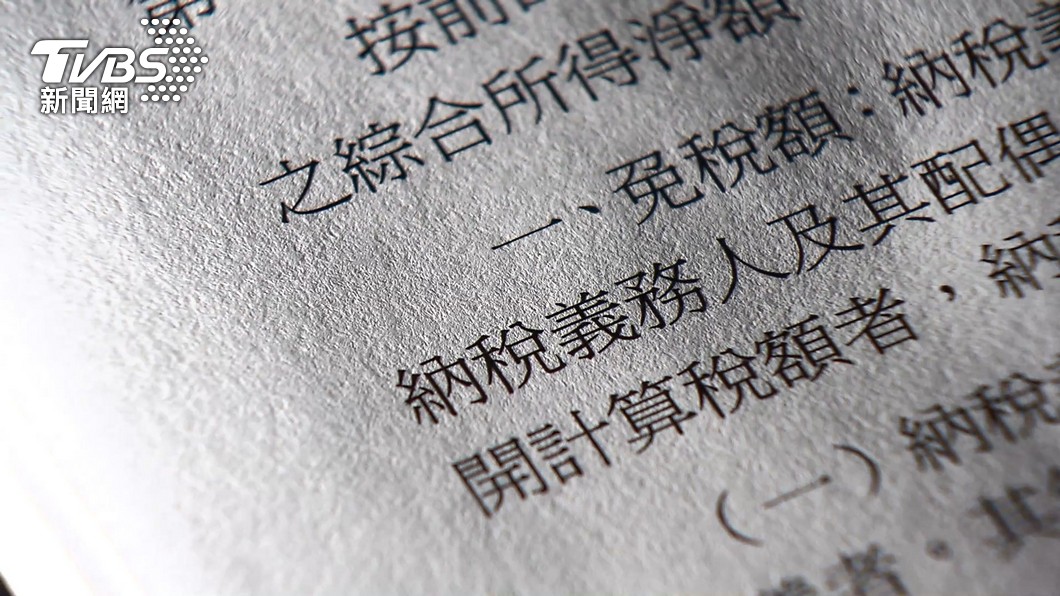 TVBS
新聞網
第
按前
之綜合所得淨額
一、免稅額：納稅義
納稅義務人及其配偶
開計算稅額者，納
（一）納稅
者。其